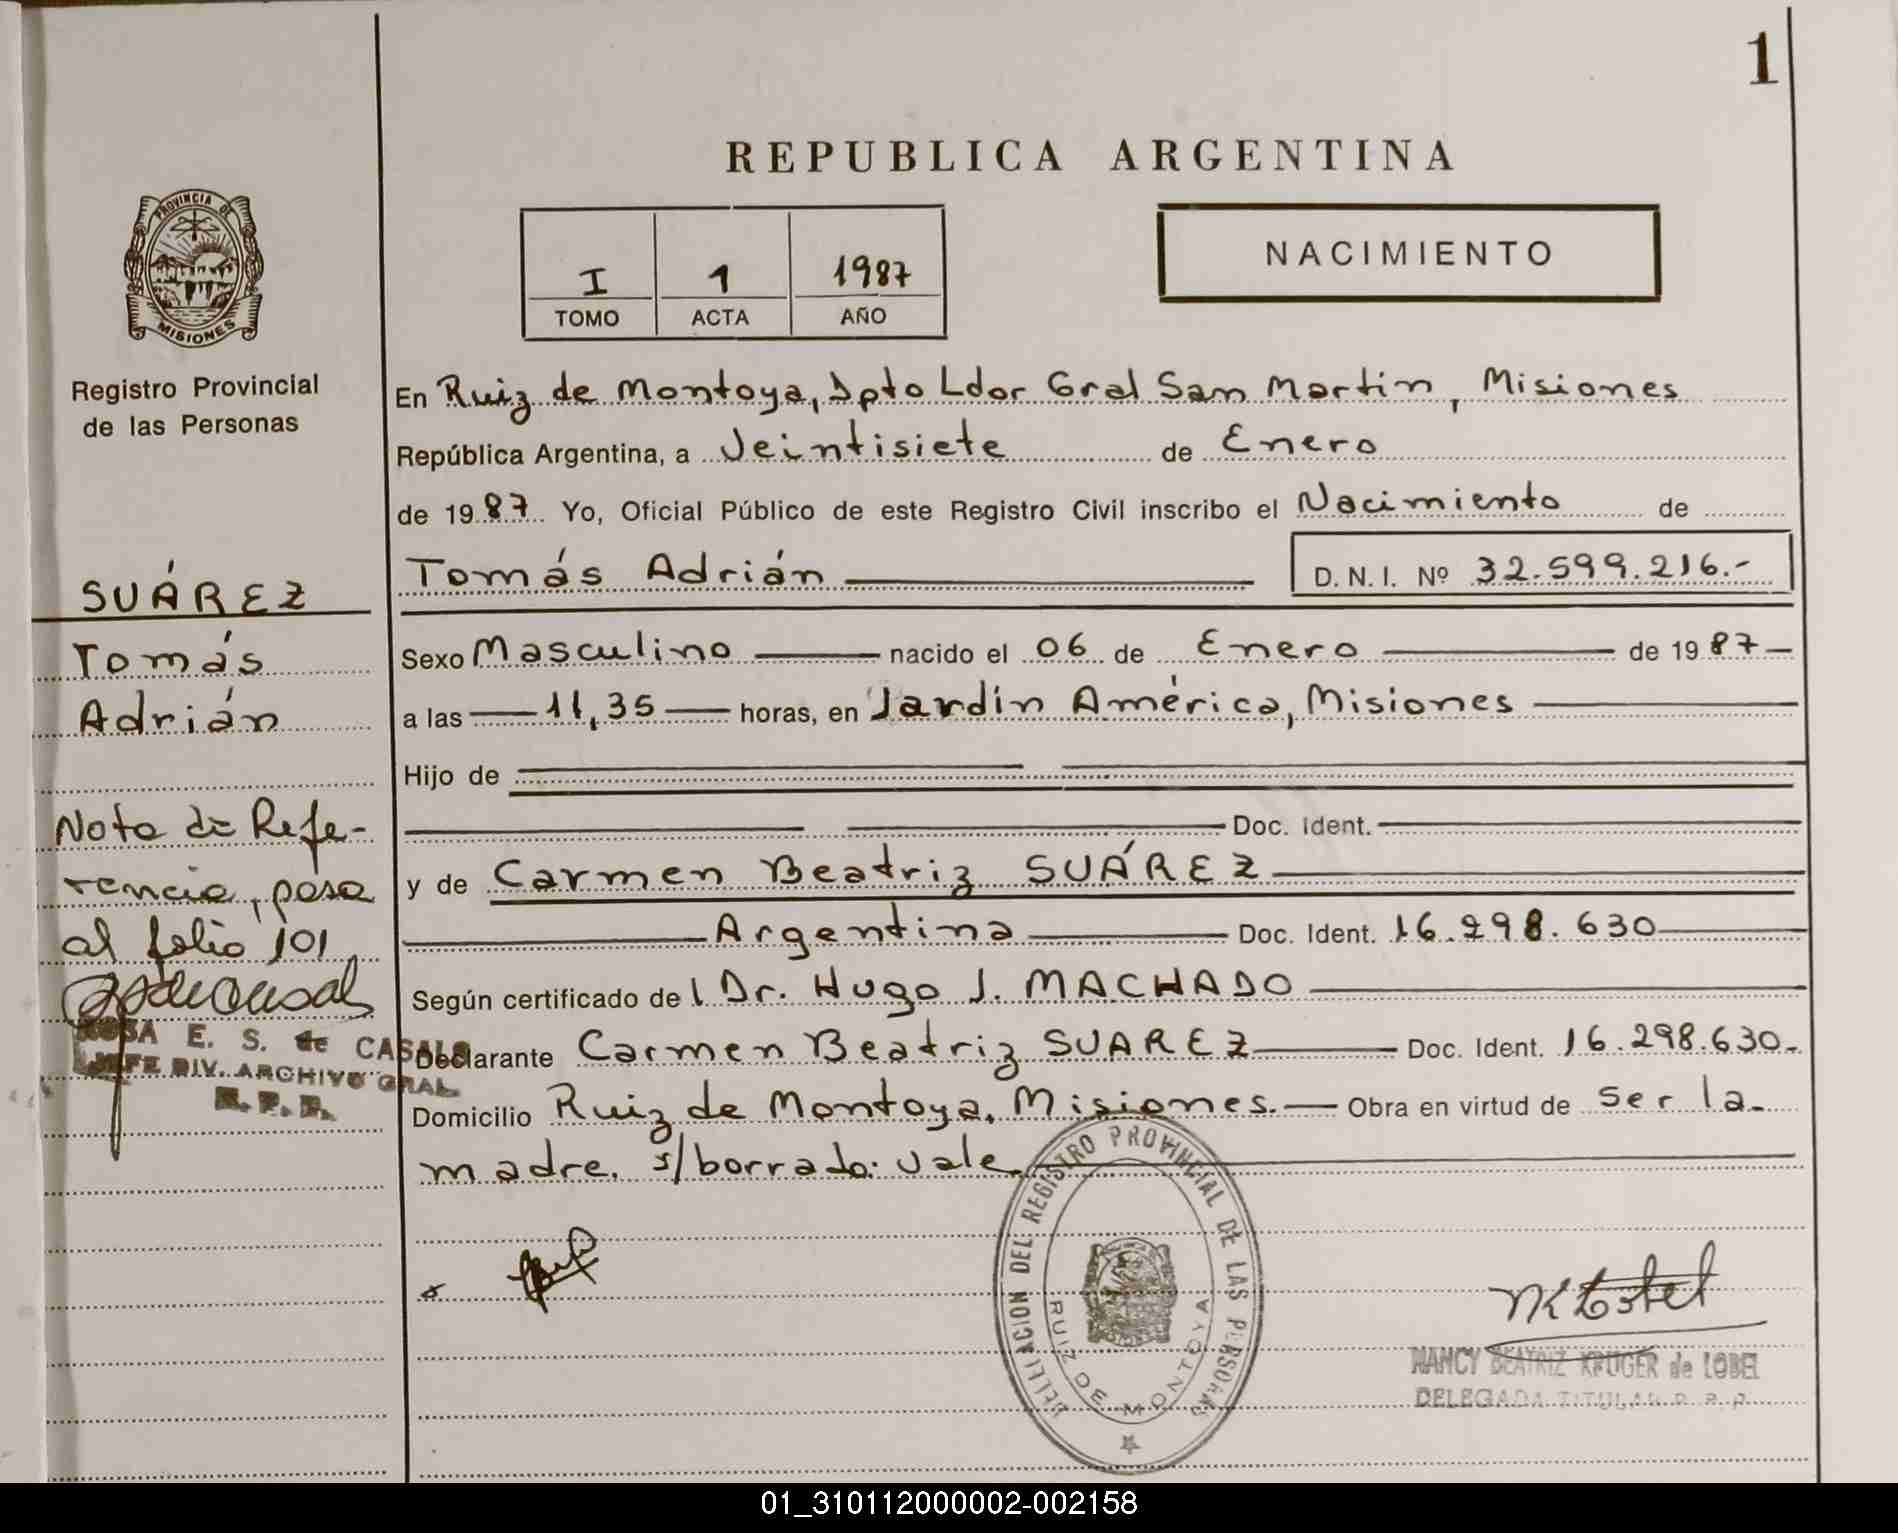 1
REPUBLICA ARGENTINA
PROVINCIA DE
MISIONES
I 1 1987
TOMO ACTA AÑO
NACIMIENTO
Registro Provincial
de las Personas
En Ruiz de Montoya, Dpto Ldor Gral San Martin, Misiones
República Argentina, a Veintisiete de Enero
de 1987 Yo, Oficial Público de este Registro Civil inscribo el Nacimiento de
Tomás Adrián D. N. I. Nº 32.599.216.-
SUÁREZ
Tomás
Adrián
Sexo Masculino nacido el 06 de Enero de 1987
a las 11,35 horas, en Jardín América, Misiones
Hijo de
Doc. Ident.
y de Carmen Beatriz SUÁREZ
Argentina Doc. Ident. 16.298.630
Según certificado del Dr. Hugo J. MACHADO
Declarante Carmen Beatriz SUAREZ Doc. Ident. 16.298.630.
Domicilio Ruiz de Montoya, Misiones. Obra en virtud de ser la
madre. s/borrado: vale.
Nota de Refe-
rencia, pasa
al folio 101
ROSA E. S. de CASALS
JEFE DIV. ARCHIVO GRAL.
R. P. P.
DELEGACION DEL REGISTRO PROVINCIAL DE LAS PERSONAS
RUIZ DE MONTOYA
NANCY BEATRIZ KRUGER de LOBEL
DELEGADA TITULAR R. P. P.
01_310112000002-002158